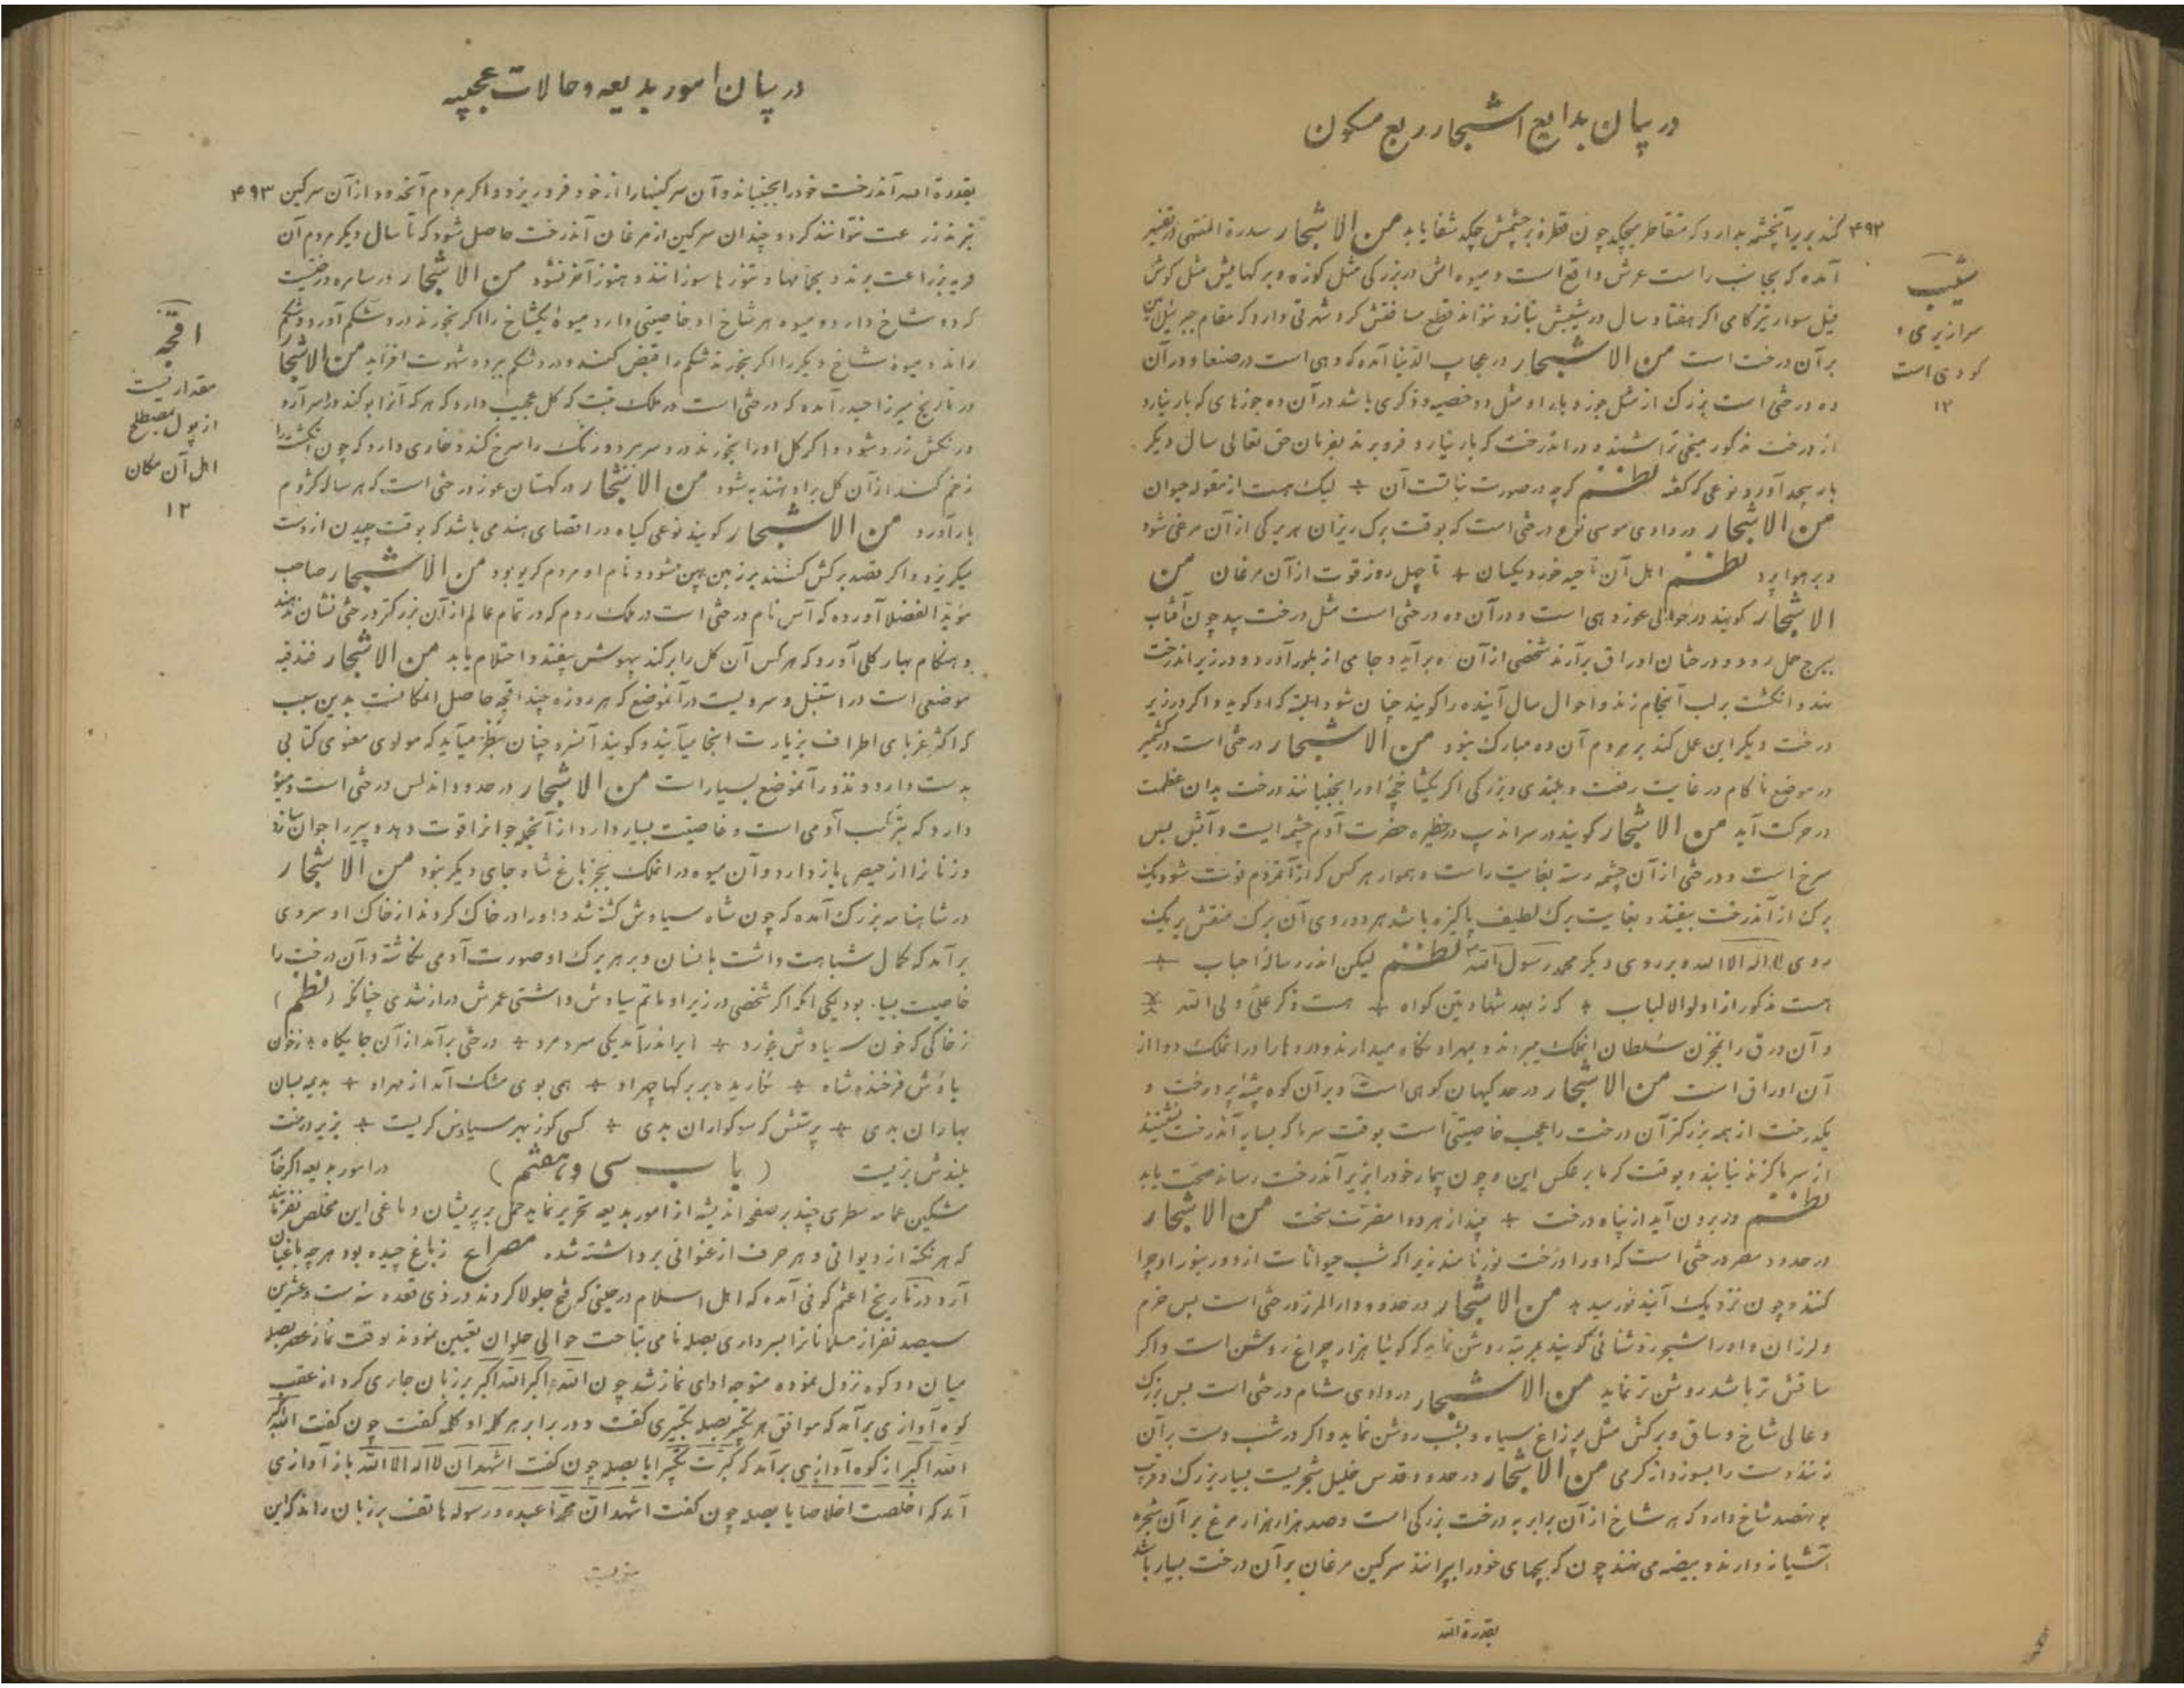 در بیان بدایع اشجار ربع مسکون
۴۹۲ کند بریر آنچشمه بدارد که متقاطر میچکد چون قطرهٔ بر چشمش چکد شفا یابد من الاشجار سدرة المنتهی در تفسیر
آمده که بجانب راست عرش واقع است و میوه اش در بزرکی مثل کوزه و برکهایش مثل کوش
فیل سوار تیزکامی اکر هفتاد سال در شیبش بتازد نتواند قطع مسافتش کرد شهرتی دارد که مقام جبرئیل امین
بر آن درخت است من الاشجار در عجایب الدنیا آمده که دهی است در صنعا و در آن
ده درختی است بزرک از مثل جوز و بار او مثل دو خصیه و ذکری باشد در آن ده جوزهای که بار نیارد
از درخت مذکور میخی تراشند و در اندرخت که بار نیارد فرو برند بفرمان حق تعالی سال دیکر
بار بیحد آورد نوعی که کفته نظم کرچه در صورت نباتست آن لیک هست از مقوله حیوان
من الاشجار در وادی موسی نوع درختی است که بوقت برک ریزان هر برکی از آن مرغی شود
و بر هوا پرد نظم اهل آن ناحیه خورد یکسان تا چهل روز قوت از آن مرغان من
الاشجار کویند در حوالی عوز دهی است و در آن ده درختی است مثل درخت بید چون آفتاب
ببرج حمل رود و درختان اوراق برآرند شخصی از آن ده برآید و جامی از بلور آورد و در زیر اندرخت
نهد و انکشت بر لب آنجام زند و احوال سال آینده را کویند چنان شود البته که او کوید و اکر در زیر
درخت دیکر این عمل کند بر مردم آن ده مبارک نبود من الاشجار درختی است در کشمیر
در موضع ناکام در غایت رفعت و بلندی و بزرکی اکر یکشاخچهٔ او را بجنبانند درخت بدان عظمت
در حرکت آید من الاشجار کویند در سراندیب در حظیره حضرت آدم چشمه ایست و آبش بس
سرخ است و درختی از آن چشمه رسته بغایت راست و هموار هر کس که از آنمردم فوت شود یک
برک از آندرخت بیفتد و بغایت برک لطیف پاکیزه باشد هر دو روی آن برک منقش بر یک
روی لا اله الا الله و بر روی دیکر محمد رسول الله نظم لیکن اندر رسالهٔ احباب
هست مذکور از اولو الالباب که ز بعد شهادتین کواه هست ذکر علی ولی الله
و آن ورق را بمخزن سلطان آنملک میبرند و بمهر او نکاه میدارند و دردها را در آنملک دوا از
آن اوراق است من الاشجار در حد کیهان کوهی است و بر آن کوه بیشهٔ پر درخت و
یکدرخت از همه بزرکتر آن درخت را عجب خاصیتی است بوقت سرما که بسایه آندرخت نشینند
از سرما کزند نیابند و بوقت کرما برعکس این و چون بیمار خود را بزیر آندرخت رساند صحت یابد
نظم وز برون آید از پناه درخت بیند از هر دوا مضرت سخت من الاشجار
در حدود مصر درختی است که او را درخت نور نامند زیرا که شب حیوانات از دور بنور او چرا
کنند و چون نزدیک آیند نور نبید من الاشجار در حدود دارالمرز درختی است بس خرم
و لرزان و او را شجر روشنائی کویند بمرتبهٔ روشن نماید که کوئیا هزار چراغ روشن است و اکر
ساقش تر باشد روشن تر نماید من الاشجار در وادی شام درختی است بس بزرک
و عالی شاخ و ساق و برکش مثل پر زاغ سیاه و بشب روشن نماید و اکر در شب دست بر آن
زنند دست را بسوزد از کرمی من الاشجار در حدود قدس خلیل شجریست بسیار بزرک و قرب
بهفتصد شاخ دارد که هر شاخ از آن برابر به درخت بزرکی است و صد هزار هزار مرغ بر آن شجره
آشیانه دارند و بیضه می نهند چون که بچهای خود را بپرانند سرکین مرغان بر آن درخت بسیار باشد
بقدرة الله
شیب
سرازیری و
کودی است
۱۲
در بیان امور بدیعه و حالات عجیبه
بقدرة الله آندرخت خود را بجنباند و آن سرکینها را از خود فرو ریزد و اکر مردم آنحدود از آن سرکین ۴۹۳
نبرند زراعت نتوانند کرد و چندان سرکین از مرغان آندرخت حاصل شود که تا سال دیکر مردم آن
قریه بزراعت برند و بحمامها و تنورها سوزانند و هنوز آخر نشود من الاشجار در سامره درختیست
که دو شاخ دارد و میوه هر شاخ او خاصیتی دارد میوهٔ یکشاخ را اکر بخورند درد شکم آورد و شکم
راند و میوهٔ شاخ دیکر را اکر بخورند شکم را قبض کند و درد شکم ببرد و شهوت افزاید من الاشجار
در تاریخ میرزا حیدر آمده که درختی است در ملک تبت که کل عجیب دارد که هر که آنرا بو کند در سر آرد
در نکش زرد شود و اکر کل او را بخورند درد سر ببرد و رنک را سرخ کند و خاری دارد که چون انکشت را
زخم کند از آن کل بر او نهند به شود من الاشجار در کهستان عوز درختی است که هر ساله کژدم
بار آورد من الاشجار کویند نوعی کیاه در اقصای هند می باشد که بوقت چیدن از دست
میکریزد و اکر قصد برکش کنند بر زمین پهن میشود و نام او مردم کریو بود من الاشجار صاحب
مؤید الفضلا آورده که آس نام درختی است در ملک روم که در تمام عالم از آن بزرکتر درختی نشان ندهند
و هنکام بهار کلی آورد که هر کس آن کل را بر کند بیهوش بیفتد و احتلام یابد من الاشجار فندقیه
موضعی است در استنبل و سرویست در آنموضع که هر روزه چند اقچه حاصل انمکانست بدین سبب
که اکثر غربای اطراف بزیارت اینجا میآیند و کویند آنسرو چنان بنظر میآید که مولوی معنوی کتابی
بدست دارد و نذور آنموضع بسیار است من الاشجار در حدود اندلس درختی است و میوهٔ
دارد که بترکیب آدمی است و خاصیت بسیار دارد از آنجمله جوانرا قوت دهد و پیر را جوان سازد
و زنانرا از حیض باز دارد و آن میوه در انملک بجز باغ شاه جای دیکر نبود من الاشجار
در شاهنامه بزرک آمده که چون شاه سیاوش کشته شد و او را در خاک کردند از خاک او سروی
برآمد که کمال شباهت داشت بانسان و بر هر برک او صورت آدمی نکاشته و آن درخت را
خاصیت بسیار بود یکی آنکه اکر شخصی در زیر او ماتم سیاوش داشتی عمرش دراز شدی چنانکه (نظم)
ز خاکی که خون سیاوش بخورد بابر اندر آمد یکی سرو مرد درختی برآمد از آن جایکاه ز خون
سیاوش فرخنده شاه نکاریده بر برکها چهر او همی بوی مشک آمد از مهر او بدیمه بسان
بهاران بدی پرستش که سوکواران بدی کسی کوز بهر سیاوش کریست بزیر درخت
بلندش بزیست (باب سی و هفتم) در امور بدیعه اکر خامهٔ
مشکین عمامه سطری چند بر صفحه اندیشه از امور بدیعه تحریر نماید حمل بر پریشان دماغی این مخلص نفرمایند
که هر نکته از دیوانی و هر حرف از عنوانی برداشته شده مصراع ز باغ چیده بود هر چه باغبان
آرد در تاریخ اعثم کوفی آمده که اهل اسلام در حینی که فتح جلولا کردند در ذی قعده سنه ست و عشرین
سیصد نفر از مسلمانانرا بسرداری بصله نامی بتاخت حوالی حلوان تعیین نمودند بوقت نماز عصر بصله
میان دو کوه نزول نموده متوجه ادای نماز شد چون الله اکبر الله اکبر بر زبان جاری کرد از عقب
کوه آوازی برآمد که موافق هر تکبیر بصله تکبیری کفت و در برابر هر کلمه او کلمه کفت چون کفت الله اکبر
الله اکبر از کوه آوازی برآمد که کبرت تکبیرا یا بصله چون کفت اشهد ان لا اله الا الله باز آوازی
آمد که اخلصت اخلاصا یا بصله چون کفت اشهد ان محمدا عبده و رسوله هاتف بر زبان راند که این
اقچه
مقداریست
از پول مصطلح
اهل آن مکان
۱۲